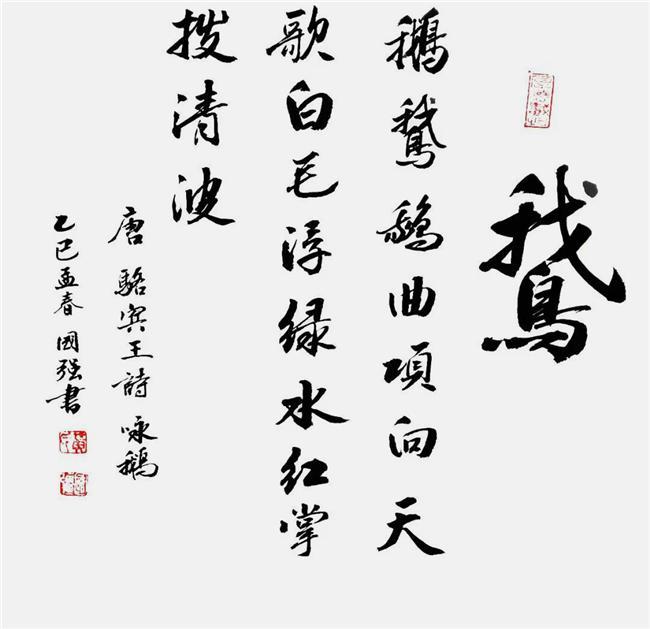 鵞
鵝鵞鵝曲項向天
歌白毛浮绿水红掌
拨清波
唐 駱宾王詩 咏鵝
乙巳孟春 國强書